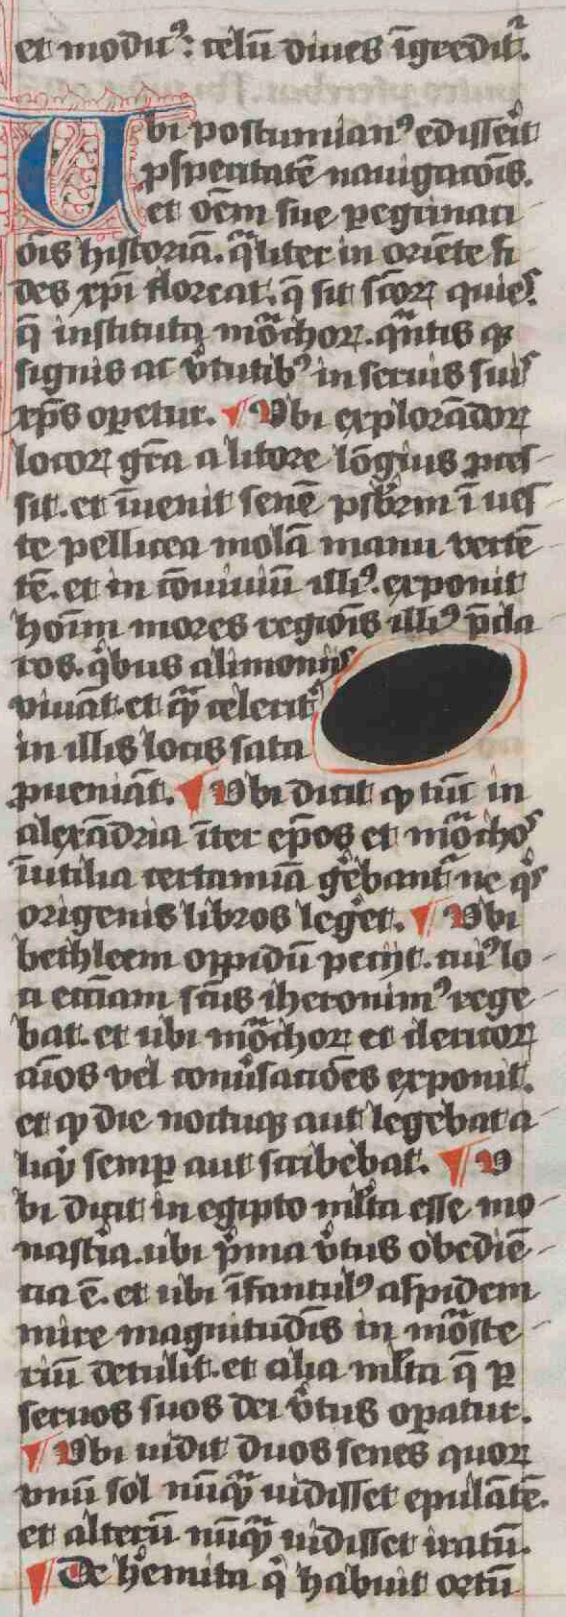 et modicꝰ: celū diues īgredit᷑.
Ubi postumianꝰ edisserit
ꝓsperitatē nauigacōis.
et oēm sue peg̃nati
ōis historiā. qͣliter in oriēte fi
des xp̄i floreat. q̄ sit sc̄oꝝ quies.
q̄ instituta mōͣchoꝝ. qͣntis qꝫ
signis ac v̾tutibꝰ in seruis suis
xp̄s opetur. ¶ Vbi explorādoꝝ
locoꝝ gr̄a a litore lōgius ꝓces
sit. et īuenit senē psb̄rm ī ues
te pellicea molā manu vertē
tē. et in cōuiuiū illiꝰ. exponit
hoīm mores regiōis illiꝰ p̄cla
ros. qͥbus alimonijs
viuāt. et qͣꝫ celerit᷑
in illis locis sata
ꝓueniāt. ¶ Vbi dicit ꝙ tūc in
alexādria īter ep̄os et mōͣchos
īutilia certamīa gͤebant᷑ ne qͥs
origenis libros legͤet. ¶ Vbi
bethleem oppidū pecijt. cuiꝰ lo
ci ecc̄iam sc̄us iheronimꝰ rege
bat. et ubi mōͣchoꝝ et clericoꝝ
aīos vel conu̾saciōes exponit.
et ꝙ die noctuqꝫ aut legebat a
liqͥd semꝑ aut scribebat. ¶ V
bi dicit in egipto ml̄ta esse mo
nastīa. ubi pͥma v̾tus obediē
cia ē. et ubi īfantulꝰ aspidem
mire magnitudīs in mōͣste
riū detulit. et alia ml̄ta q̄ ꝑ
seruos suos dei v̾tus opatur.
¶ Vbi uidit duos senes quoꝝ
vnū sol nūqͣꝫ uidisset epulātē.
et alterū nūqͣꝫ uidisset iratū.
¶ De hͤemita qͥ habuit ortū